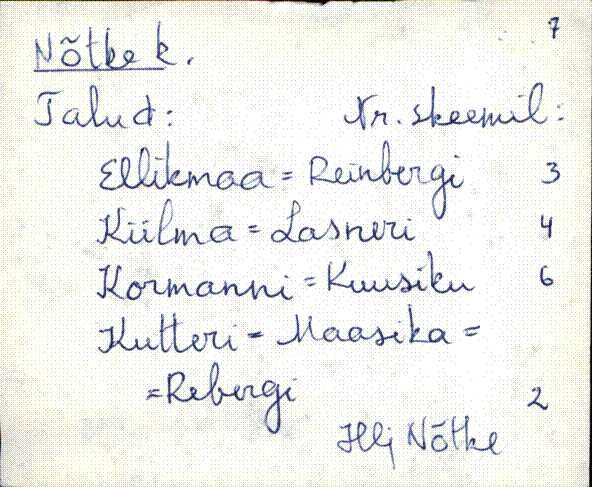 7
Nõtke k.
Talud: Nr. skeemil:
Ellikmaa = Reinbergi 3
Külma = Lasneri 4
Kormanni = Kuusiku 6
Kutteri = Maasika =
= Rebergi 2
Hlj Nõtke